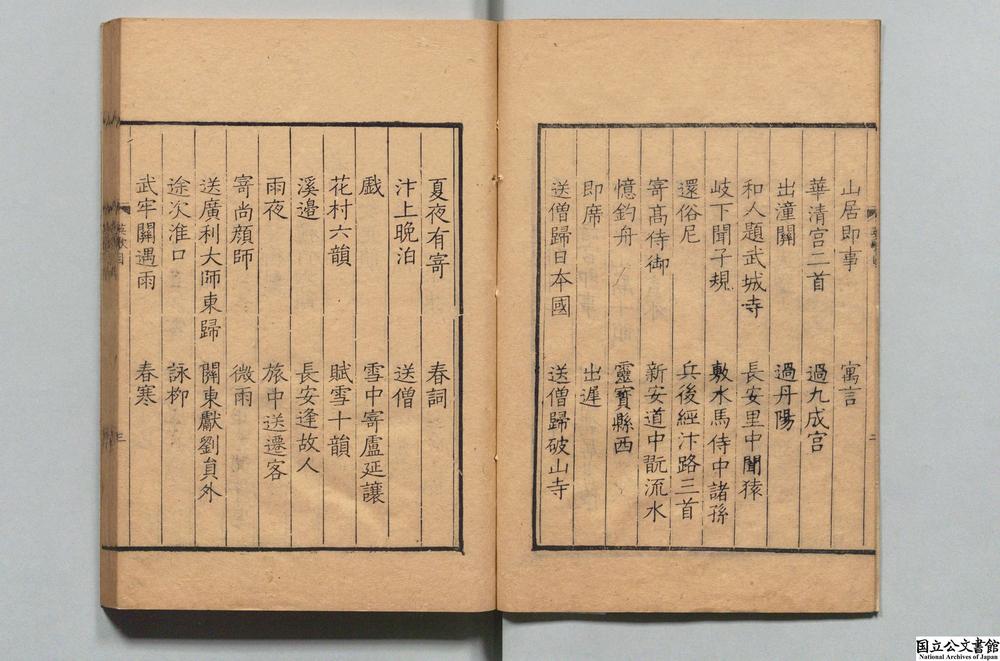 山居即事　寓言
華清宮二首　過九成宮
出潼關　過丹陽
和人題武城寺　長安里中聞猿
岐下聞子規　敷水馬侍中諸孫
還俗尼　兵後經汴路三首
寄髙侍御　新安道中翫流水
憶釣舟　靈寳縣西
即席　出遅
送僧歸日本國　送僧歸破山寺
二
夏夜有寄　春詞
汴上晚泊　送僧
戲　雪中寄盧延讓
花村六韻　賦雪十韻
溪邉　長安逢故人
雨夜　旅中送遷客
寄尚顔師　微雨
送廣利大師東歸　關東獻劉貟外
途次淮口　詠柳
武牢關遇雨　春寒
三
国立公文書館
National Archives of Japan